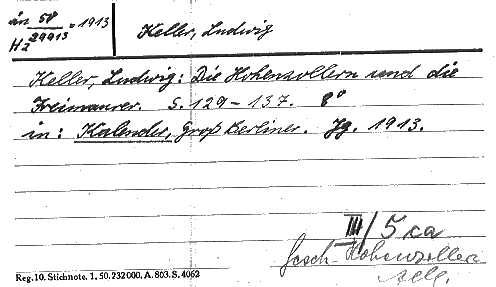 in 50/29913 - 1913
Hz
Keller, Ludwig
Keller, Ludwig: Die Hohenzollern und die
Freimaurer. S. 129-137. 8°
in: Kalender, Groß Berliner. Jg. 1913.
III/5 ca
Gesch. Hohenzollern
Allg.
Reg. 10. Stichnote. 1, 50, 232 000, A. 803. S. 4062